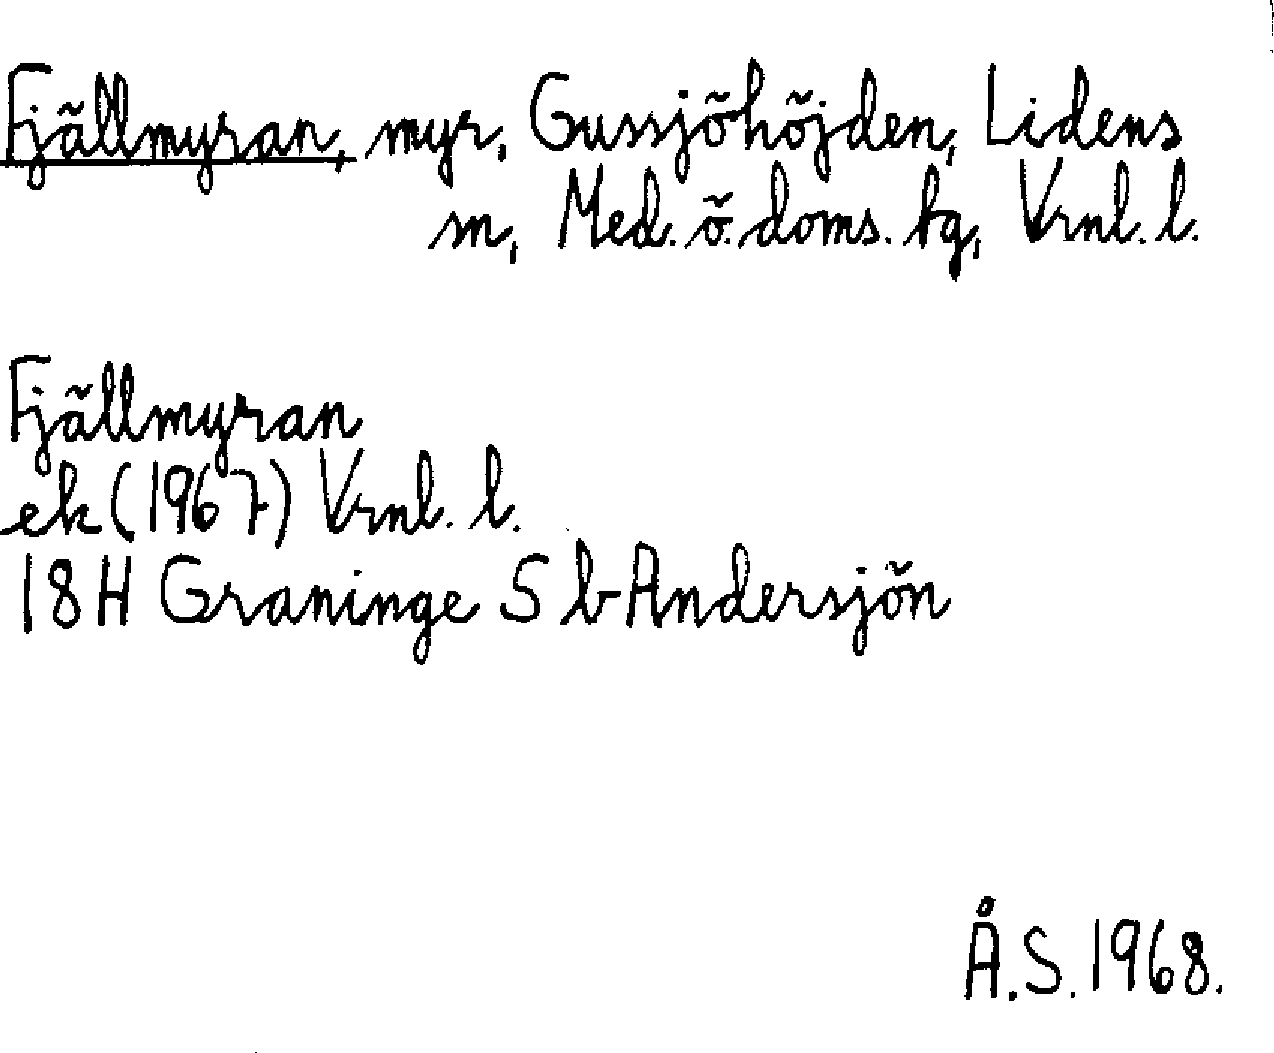 Fjällmyran, myr, Gussjöhöjden, Lidens
sn, Med. ö. doms. tg, Vrnl. l.
Fjällmyran
ek (1967) Vrnl. l.
18H Graninge S b Andersjön
Å.S. 1968.